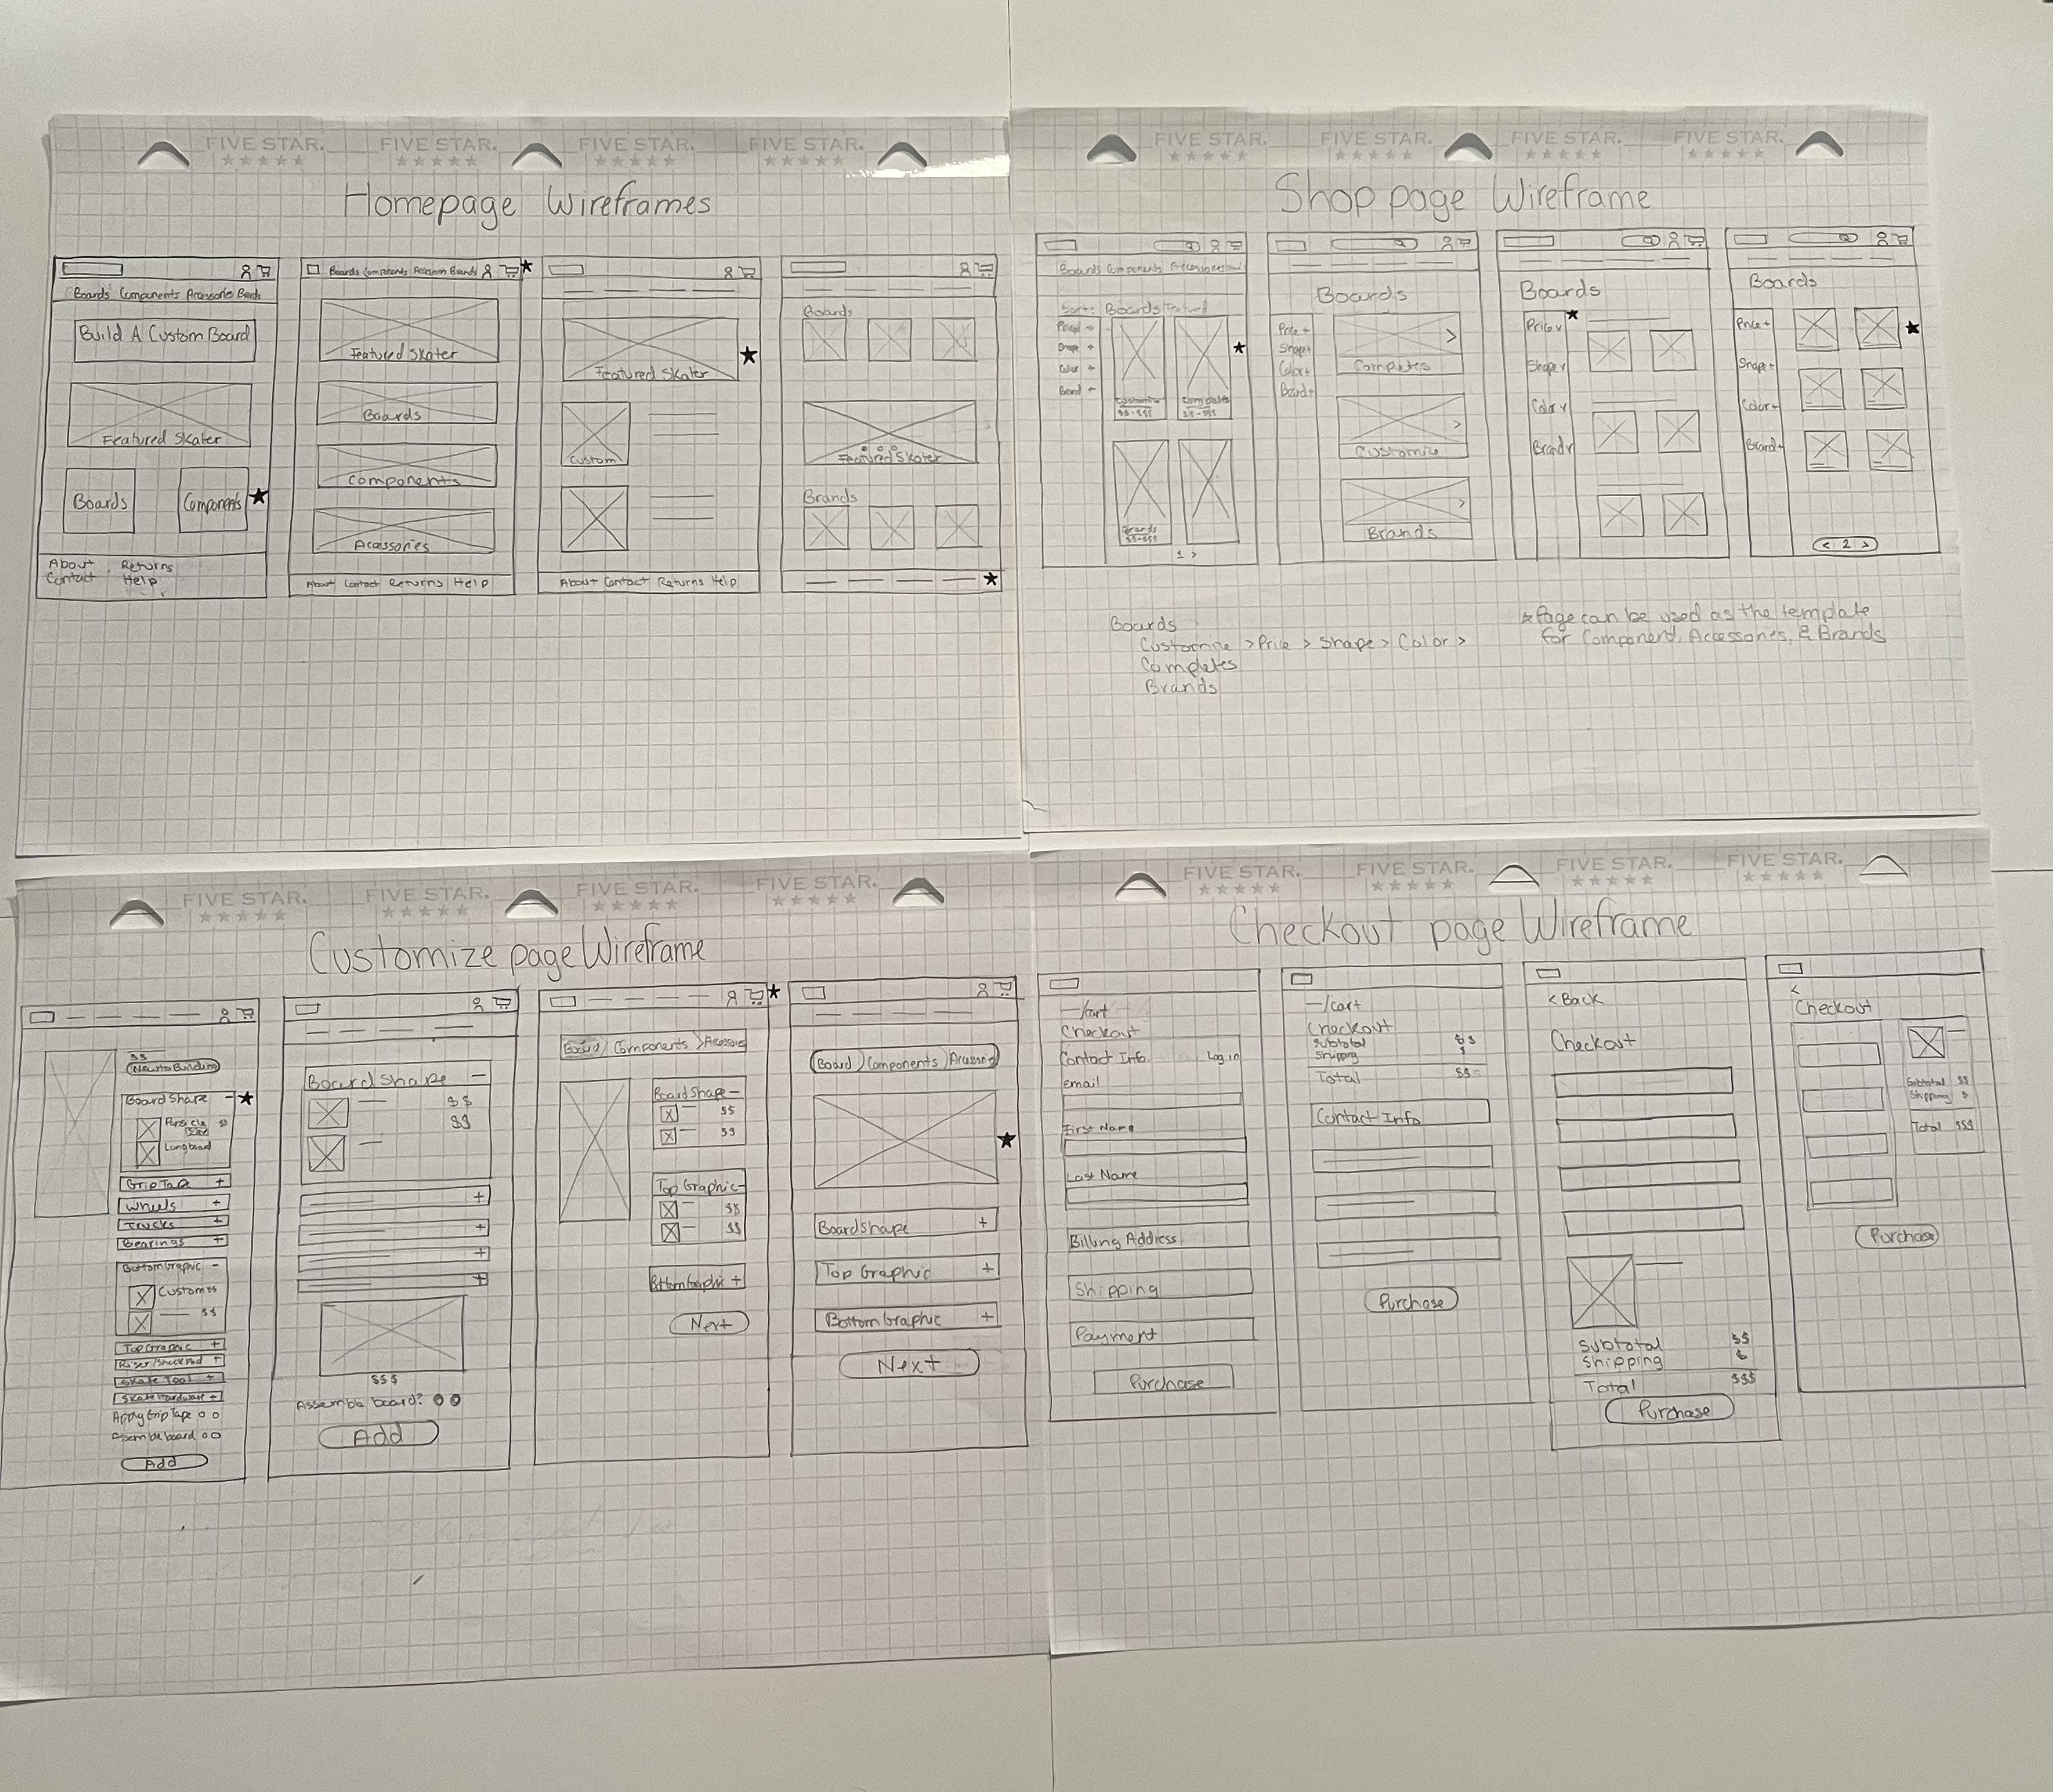 FIVE STAR. FIVE STAR. FIVE STAR. FIVE STAR.
Homepage Wireframes
Boards Components
Build A Custom Board
Featured Skater
Boards
Components
About Returns
Contact Help
Boards Components Brands
Featured Skater
Boards
Components
Acessories
About Contact Returns Help
Featured Skater
Custom
About Contact Returns Help
Boards
Featured Skater
Brands
FIVE STAR. FIVE STAR. FIVE STAR. FIVE STAR.
Shop page Wireframe
Boards Components
Sort: Boards Featured
Price +
Shape +
Color +
Brand +
Customize
$$-$$$
Completes
$$-$$$
Brands
$$-$$$
1 >
Boards
Price +
Shape +
Color +
Brand +
>
Completes
>
Customize
>
Brands
Boards
Price v
Shape v
Color v
Brand v
Boards
Price +
Shape +
Color +
Brand +
< 2 >
Boards
Customize > Price > Shape > Color >
Completes
Brands
* Page can be used as the template
for Component, Accessories, & Brands
FIVE STAR. FIVE STAR. FIVE STAR. FIVE STAR.
Customize page Wireframe
$$
New to Building
Board Shape -
Longboard
Grip Tape +
Wheels +
Trucks +
Bearings +
Bottom Graphic -
Custom $$
$$
Top Graphic +
Riser/Shock Pad +
Skate Tool +
Skate Hardware +
Apply Grip Tape o o
Assemble board o o
Add
Board Shape -
$$
$$
+
+
+
+
$$$
Assemble board? o o
Add
Board / Components >
Board Shape -
$$
$$
Top Graphic -
$$
$$
Bottom Graphic +
Next
Board ) Components )
Board shape +
Top Graphic +
Bottom Graphic +
Next
FIVE STAR. FIVE STAR. FIVE STAR. FIVE STAR.
Checkout page Wireframe
—/cart
Checkout
Contact Info. Log in
email
First Name
Last Name
Billing Address
Shipping
Payment
Purchase
—/cart
Checkout
Subtotal $$
Shipping $
Total $$
Contact Info
Purchase
< Back
Checkout
Subtotal $$
Shipping $
Total $$$
Purchase
<
Checkout
Subtotal $$
Shipping $
Total $$$
Purchase